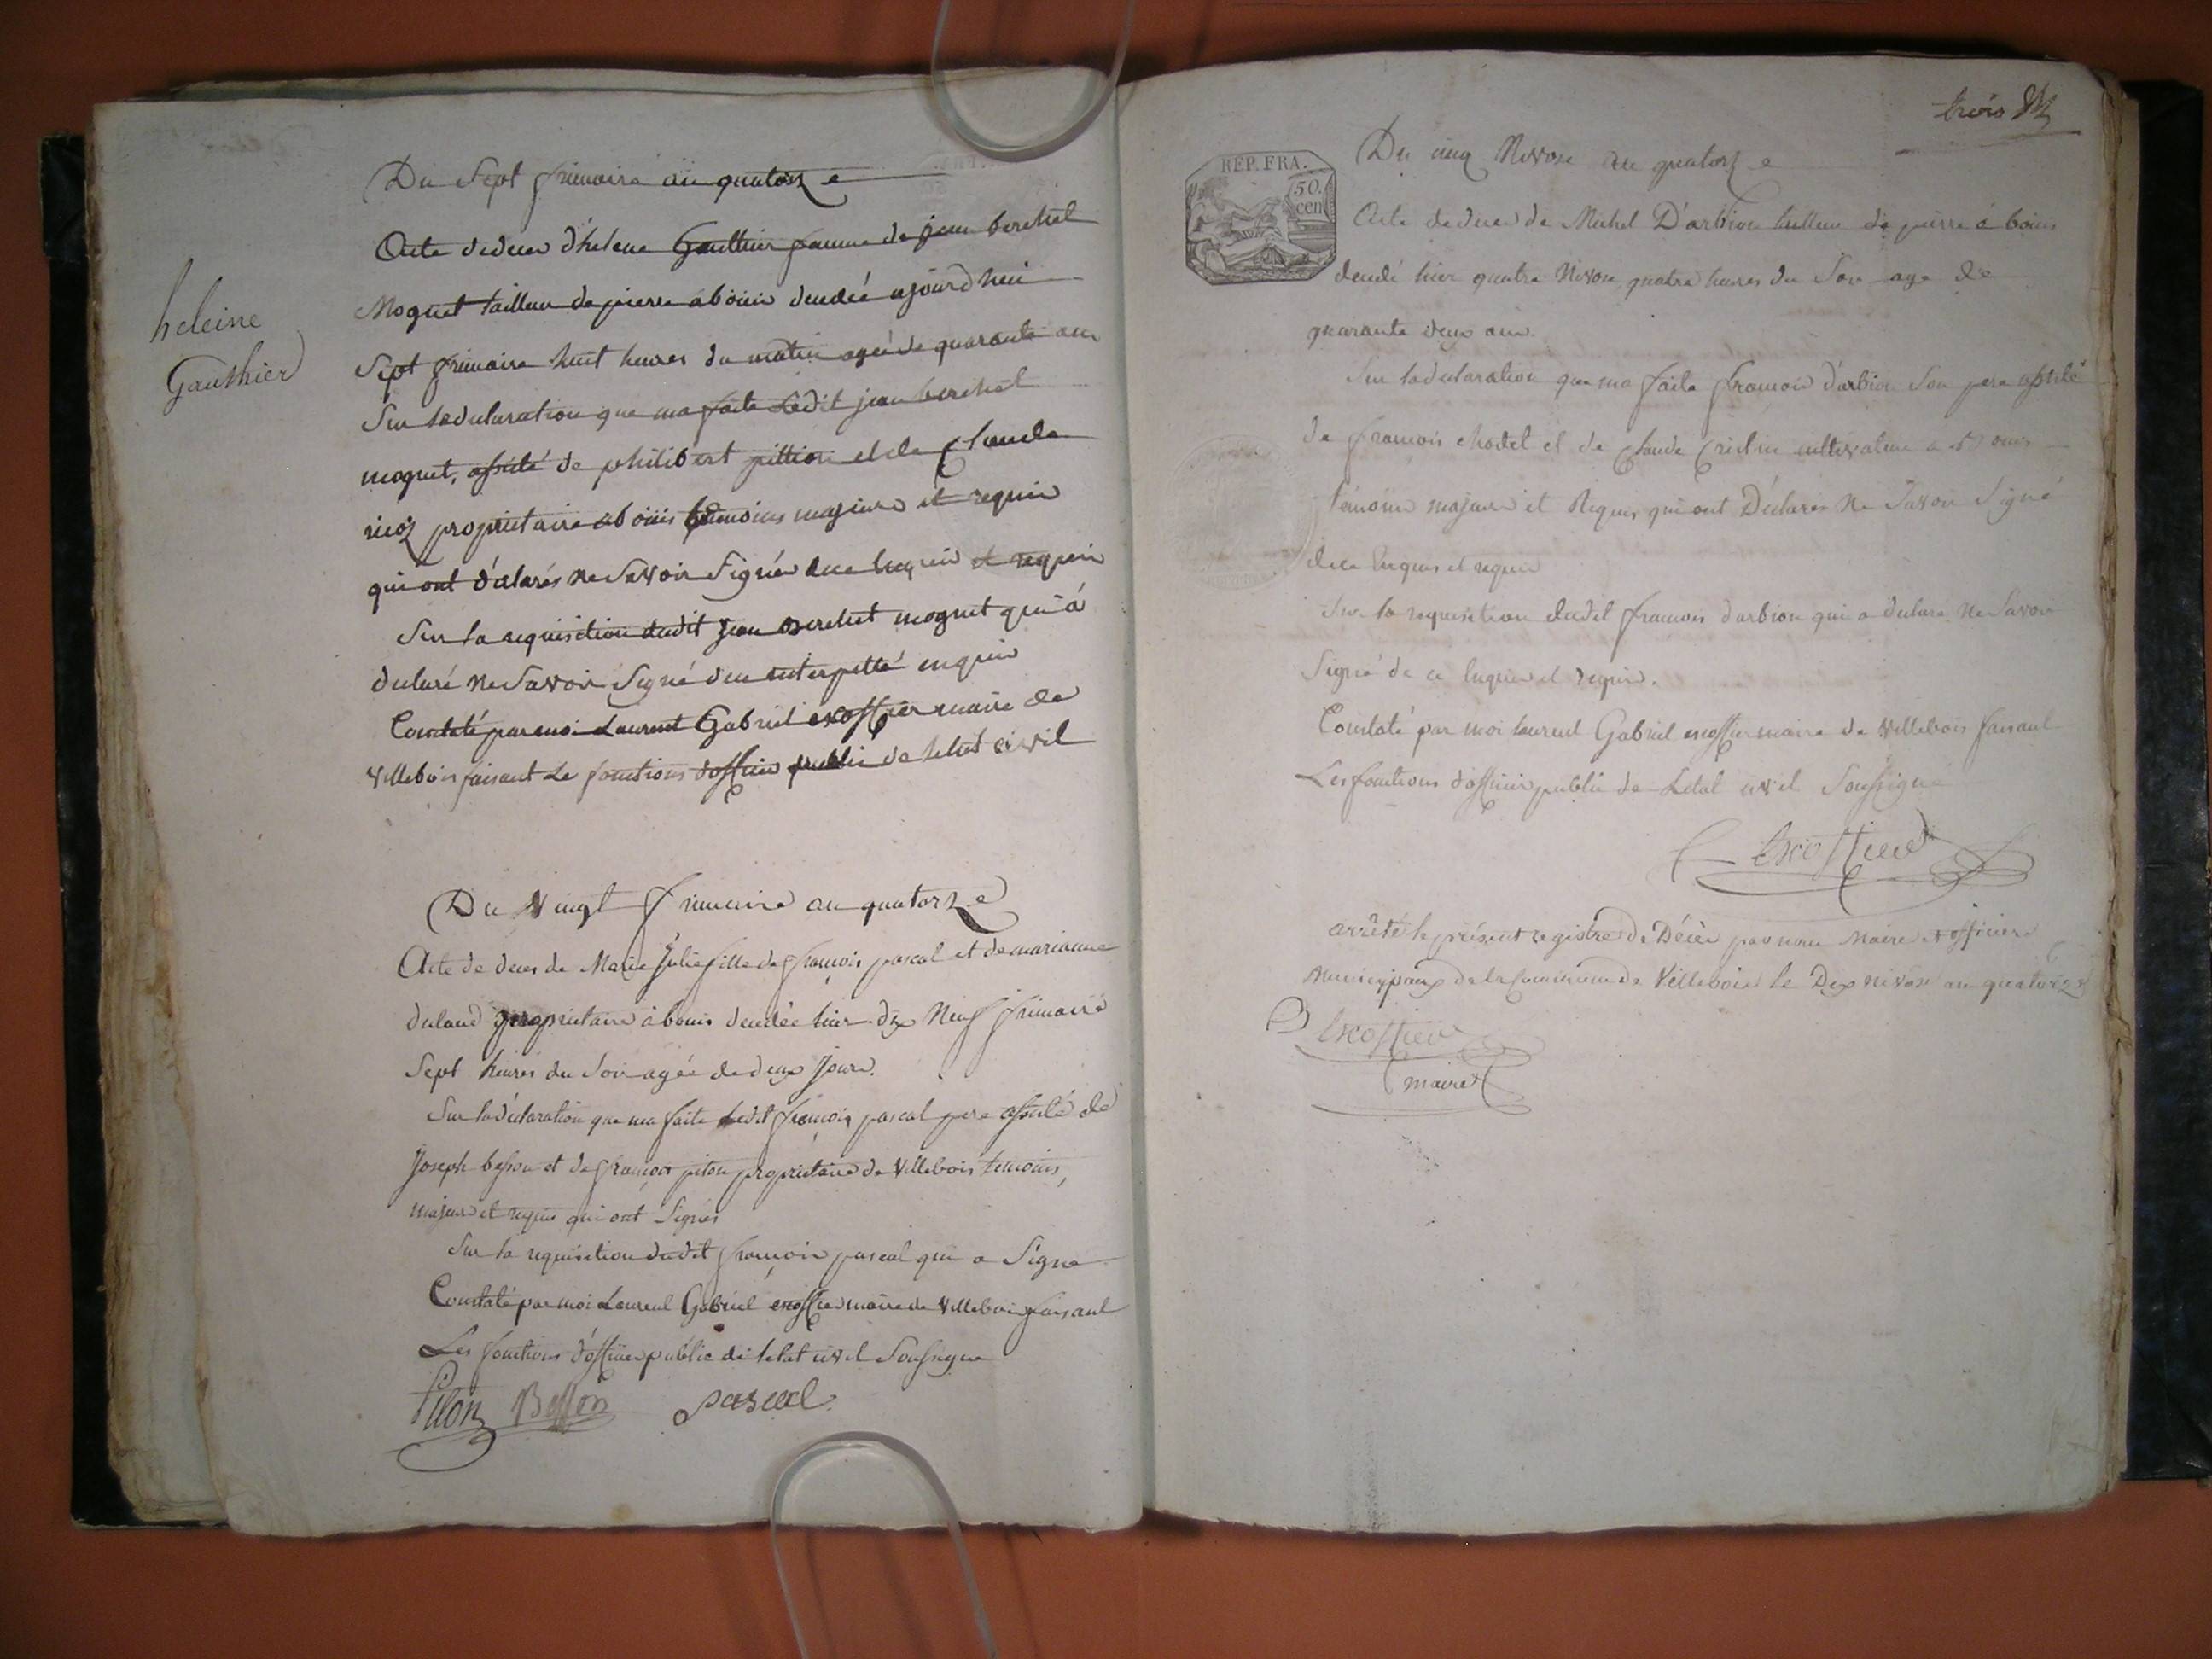 heleine
Gauthier
Du Sept frimaire an quatorze
Acte de deces d'helene Gautthier femme de jean berchet
Moguet tailleur de pierre a bouis decedée ajourd'hui
Sept frimaire huit heures du matin agée de quarante ans
Sur la declaration que ma faite Ledit jean berchet
moguet, assisté de philibert pittion et de Claude
proprietaire a bouis temoins majeurs et requis
qui ont déclarés ne Savoir Signér de ce enquis et requis
Sur la requisition dudit jean berchet moguet qui a
declaré ne Savoir Signé de ce interpellé enquis
Constaté par moi Laurent Gabriel escoffier maire de
villebois faisant Le fonctions d'officier public de letat civil
Du Vingt frimaire an quatorze
Acte de deces de Marie Julie fille de françois pascal et de marianne
proprietaire à bouis decedée hier dix Neuf frimaire
Sept heures du Soir agée de deux Jours.
Sur la déclaration que ma faite Ledit françois pascal pere assisté de
Joseph besson et de françois pilon proprietaire de Villebois temoins,
majeurs et requis qui ont Signés
Sur la requisition dudit françois pascal qui a Signe
Constaté par moi Laurent Gabriel escoffier maire de Villebois faisant
Les fonctions d'officier public de letat civil Soussigne
Pilon Besson pascal
trois
REP. FRA.
50.
cen
Du cinq Nivose an quatorze
Acte de deces de Michel D'arbion tailleur de pierre a bouis
decedé hier quatre Nivose quatre heures du Soir age de
quarante deux ans.
Sur la declaration que ma faite françois d'arbion Son pere assisté
de françois chodel et de Claude cultivateur a bouis
témoins majeurs et Requis qui ont Déclarés Ne Savoir Signé
de ce Enquis et requis
Sur la requisition dudit françois darbion qui a declare Ne Savoir
Signé de ce Enquis et requis.
Constaté par moi laurent Gabriel escoffier maire de Villebois faisant
Les fonctions d'officier public de Letat civil Soussigné
Escoffier
arrêté le présent registre de Décès par nous Maire et officier
Municipaux de la Commune de Villebois le Dix nivose an quatorze
Escoffier
maire